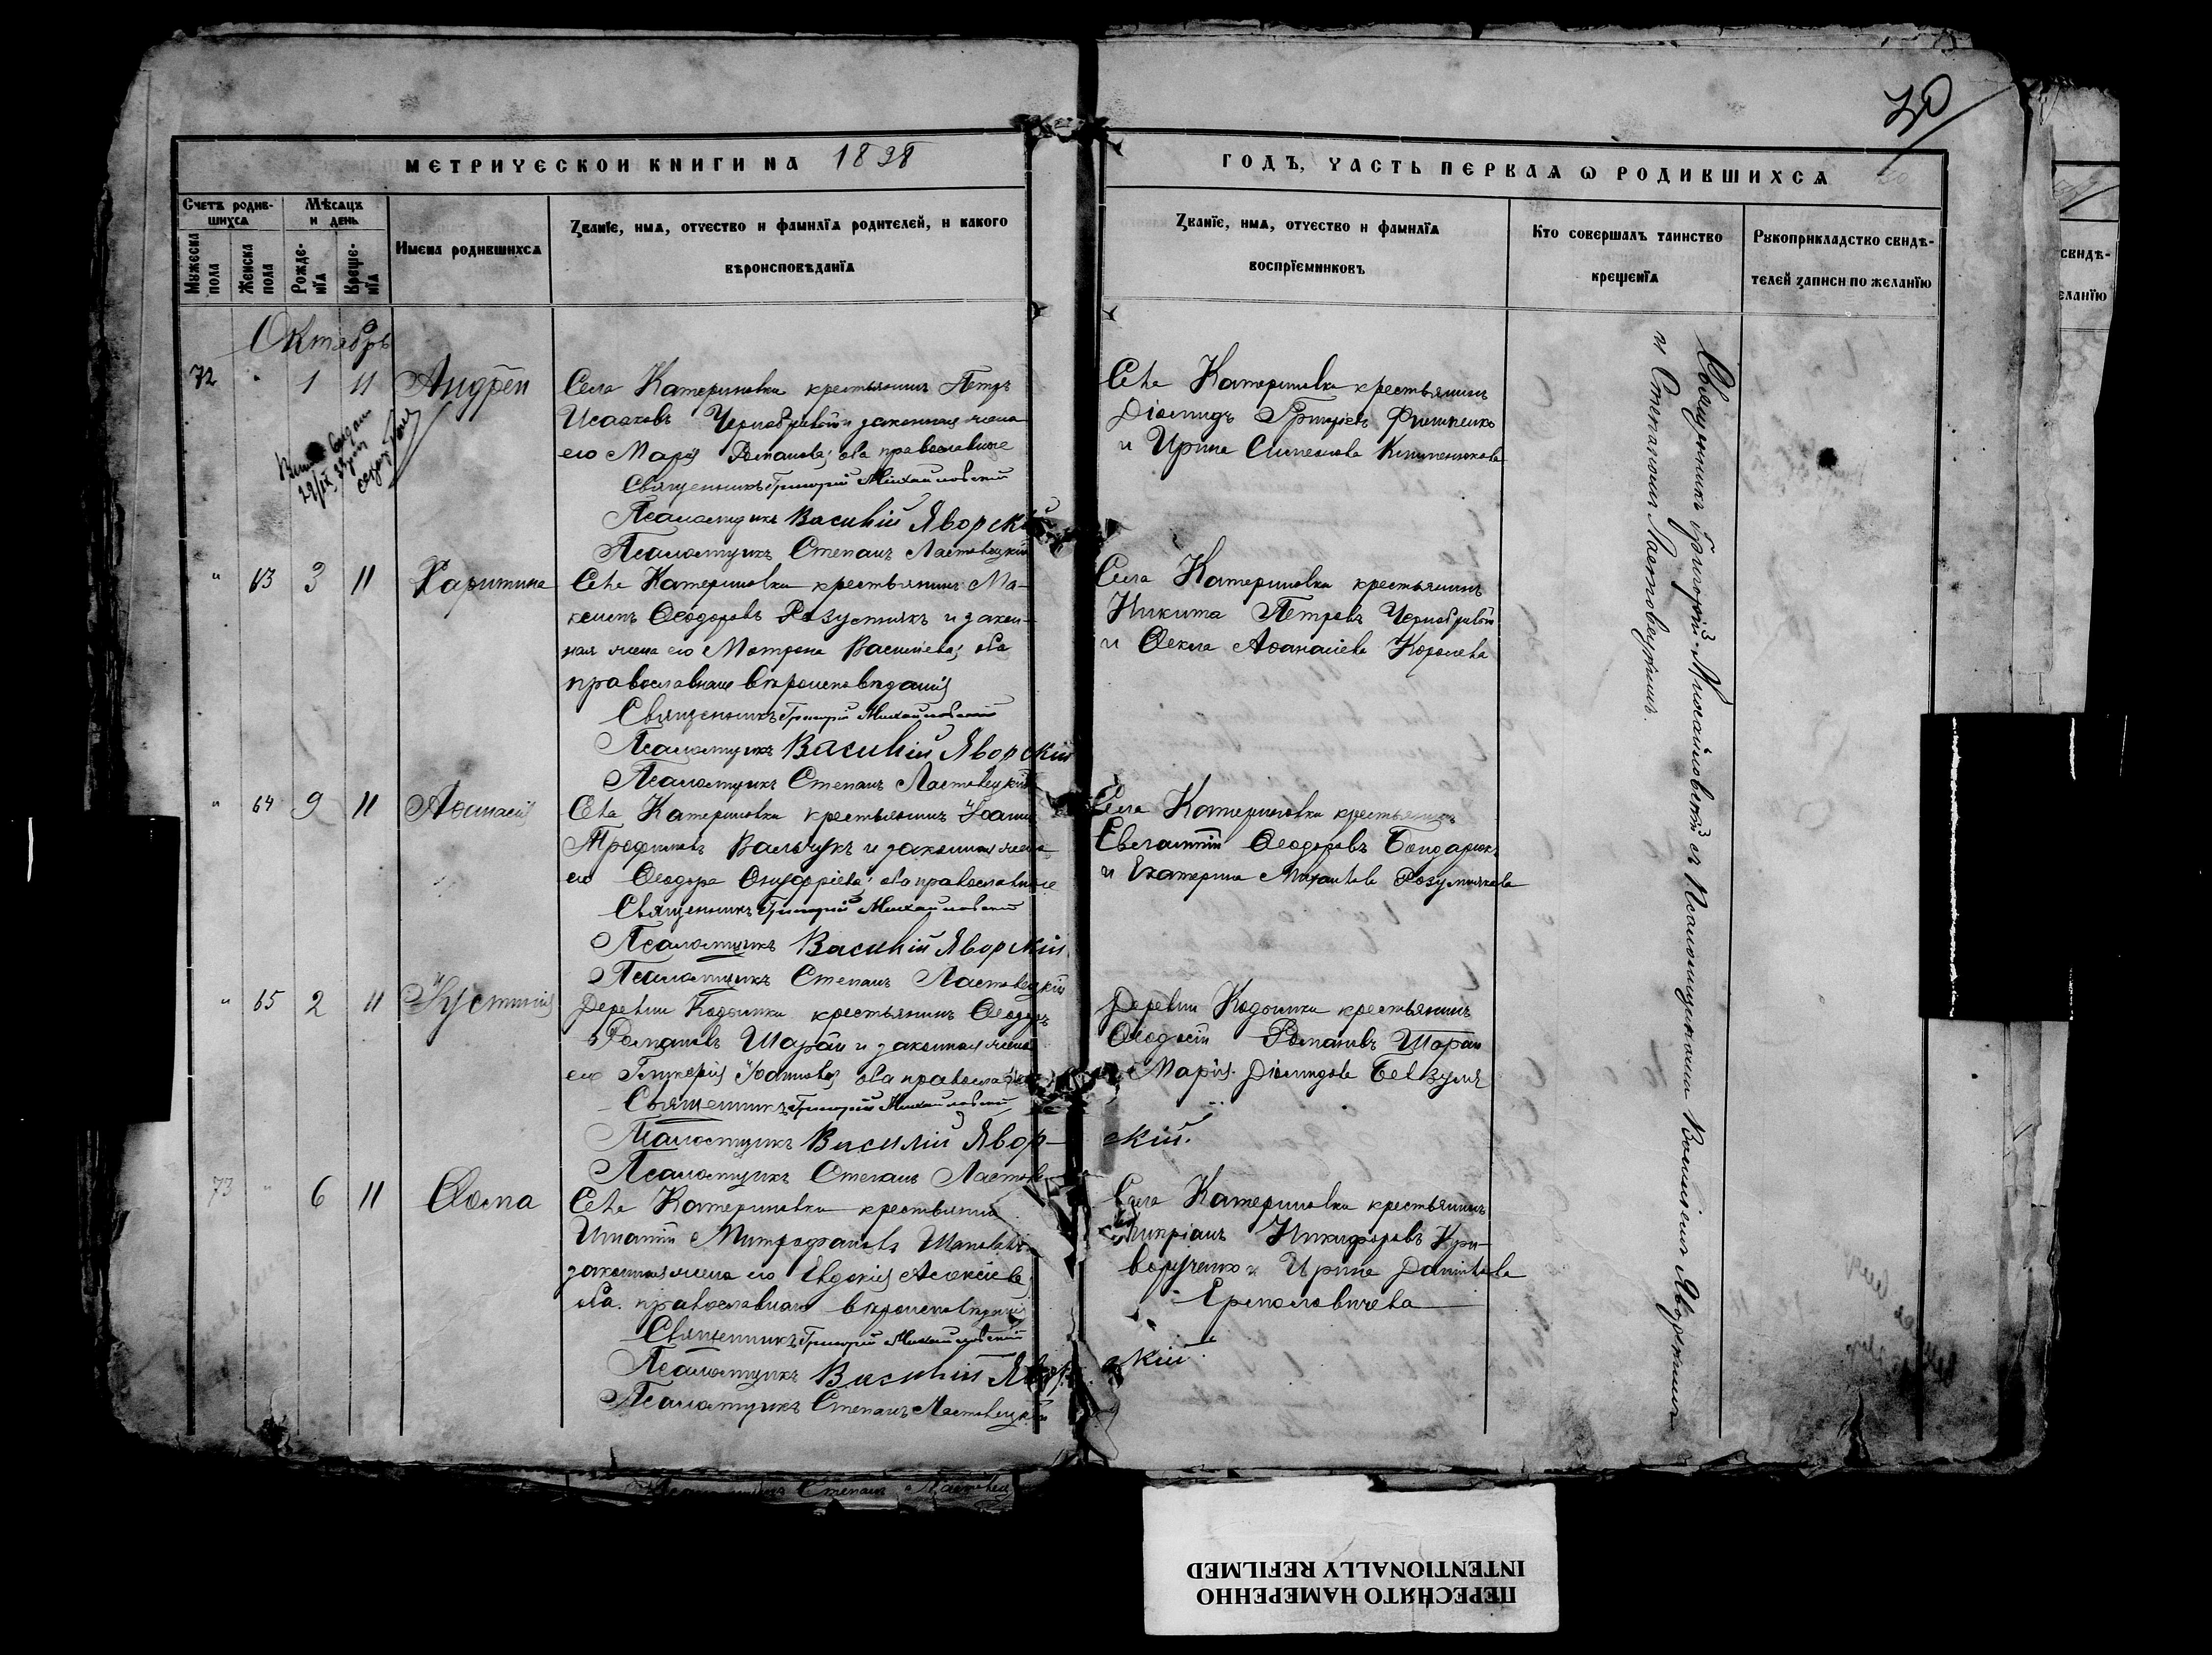 МЕТРИЧЕСКОЙ КНИГИ НА 1898
ГОДЪ, ЧАСТЬ ПЕРВАЯ Ѡ РОДИВШИХСѦ
20
Счетъ родив-
шихсѧ
Мужеска
пола
Женска
пола
Мѣсяцъ
и день
Рожде-
нїѧ
Креще-
нїѧ
Имена родившихсѧ
Званїе, имѧ, отчество и фамилїѧ родителей, и какого
вѣроисповѣданїѧ
Званїе, имѧ, отчество и фамилїѧ
воспрїемниковъ
Кто совершалъ таинство
крещенїѧ
Рукоприкладство свидѣ-
телей записи по желанїю
Октябрь
72 " 1 11 Андрей
Села Катериновки крестьянинъ Петръ
Исааковъ Чернобривый и законная жена
его Марія Романова; оба православные
Священникъ Григорій Михайловскій
Псаломщикъ Василій Яворскій
Псаломщикъ Степанъ Ластовецкій
Села Катериновки крестьянинъ
Діомидъ Григорьевъ
и Ирина Симеонова
" 63 3 11 Харитина
Села Катериновки крестьянинъ Ма-
ксимъ Ѳеодоровъ Розумнякъ и закон-
ная жена его Матрона Васильева; оба
православнаго вѣроисповѣданія
Священникъ Григорій Михайловскій
Псаломщикъ Василій Яворскій
Псаломщикъ Степанъ Ластовецкій
Села Катериновки крестьянинъ
Никита Петровъ Чернобривый
и Ѳекла Аѳанасіева Королева
" 64 9 11 Аѳанасія
Села Катериновки крестьянинъ Іоаннъ
Трофимовъ Вальчукъ и законная жена
его Ѳеодора Онуфріева; оба православные
Священникъ Григорій Михайловскій
Псаломщикъ Василій Яворскій
Псаломщикъ Степанъ Ластовецкій
Села Катериновки крестьянинъ
Евстаѳій Ѳеодоровъ Бондарюкъ
и Екатерина Михайлова Розумнякова
" 65 2 11 Іустинія
Деревни Кодоинки крестьянинъ Ѳеодоръ
Романовъ Шаранъ и законная жена
его Гликерія Іоаннова; оба православные
Священникъ Григорій Михайловскій
Псаломщикъ Василій Явор-
скій.
Псаломщикъ Степанъ Ластов
Деревни Кодоинки крестьянинъ
Ѳеодосій Романовъ Шаранъ
и Марія Діомидова
73 " 6 11 Ѳома
Села Катериновки крестьянинъ
Игнатій Митрофановъ
законная жена его Евдокія Алексіева
оба православнаго вѣроисповѣданія
Священникъ Григорій Михайловскій
Псаломщикъ Василій Явор
скій
Псаломщикъ Степанъ Ластовецкій
Села Катериновки крестьянинъ
Кипріанъ Никифоровъ Кри-
воручко и Ирина Даніилова
Ермоловичева
Священникъ Григорій Михайловскій съ Псаломщиками Василіемъ Яворскимъ
и Степаномъ Ластовецкимъ.
свидѣ-
еланїю
Степанъ Ластовец
ПЕРЕСНЯТО НАМЕРЕННО
INTENTIONALLY REFILMED